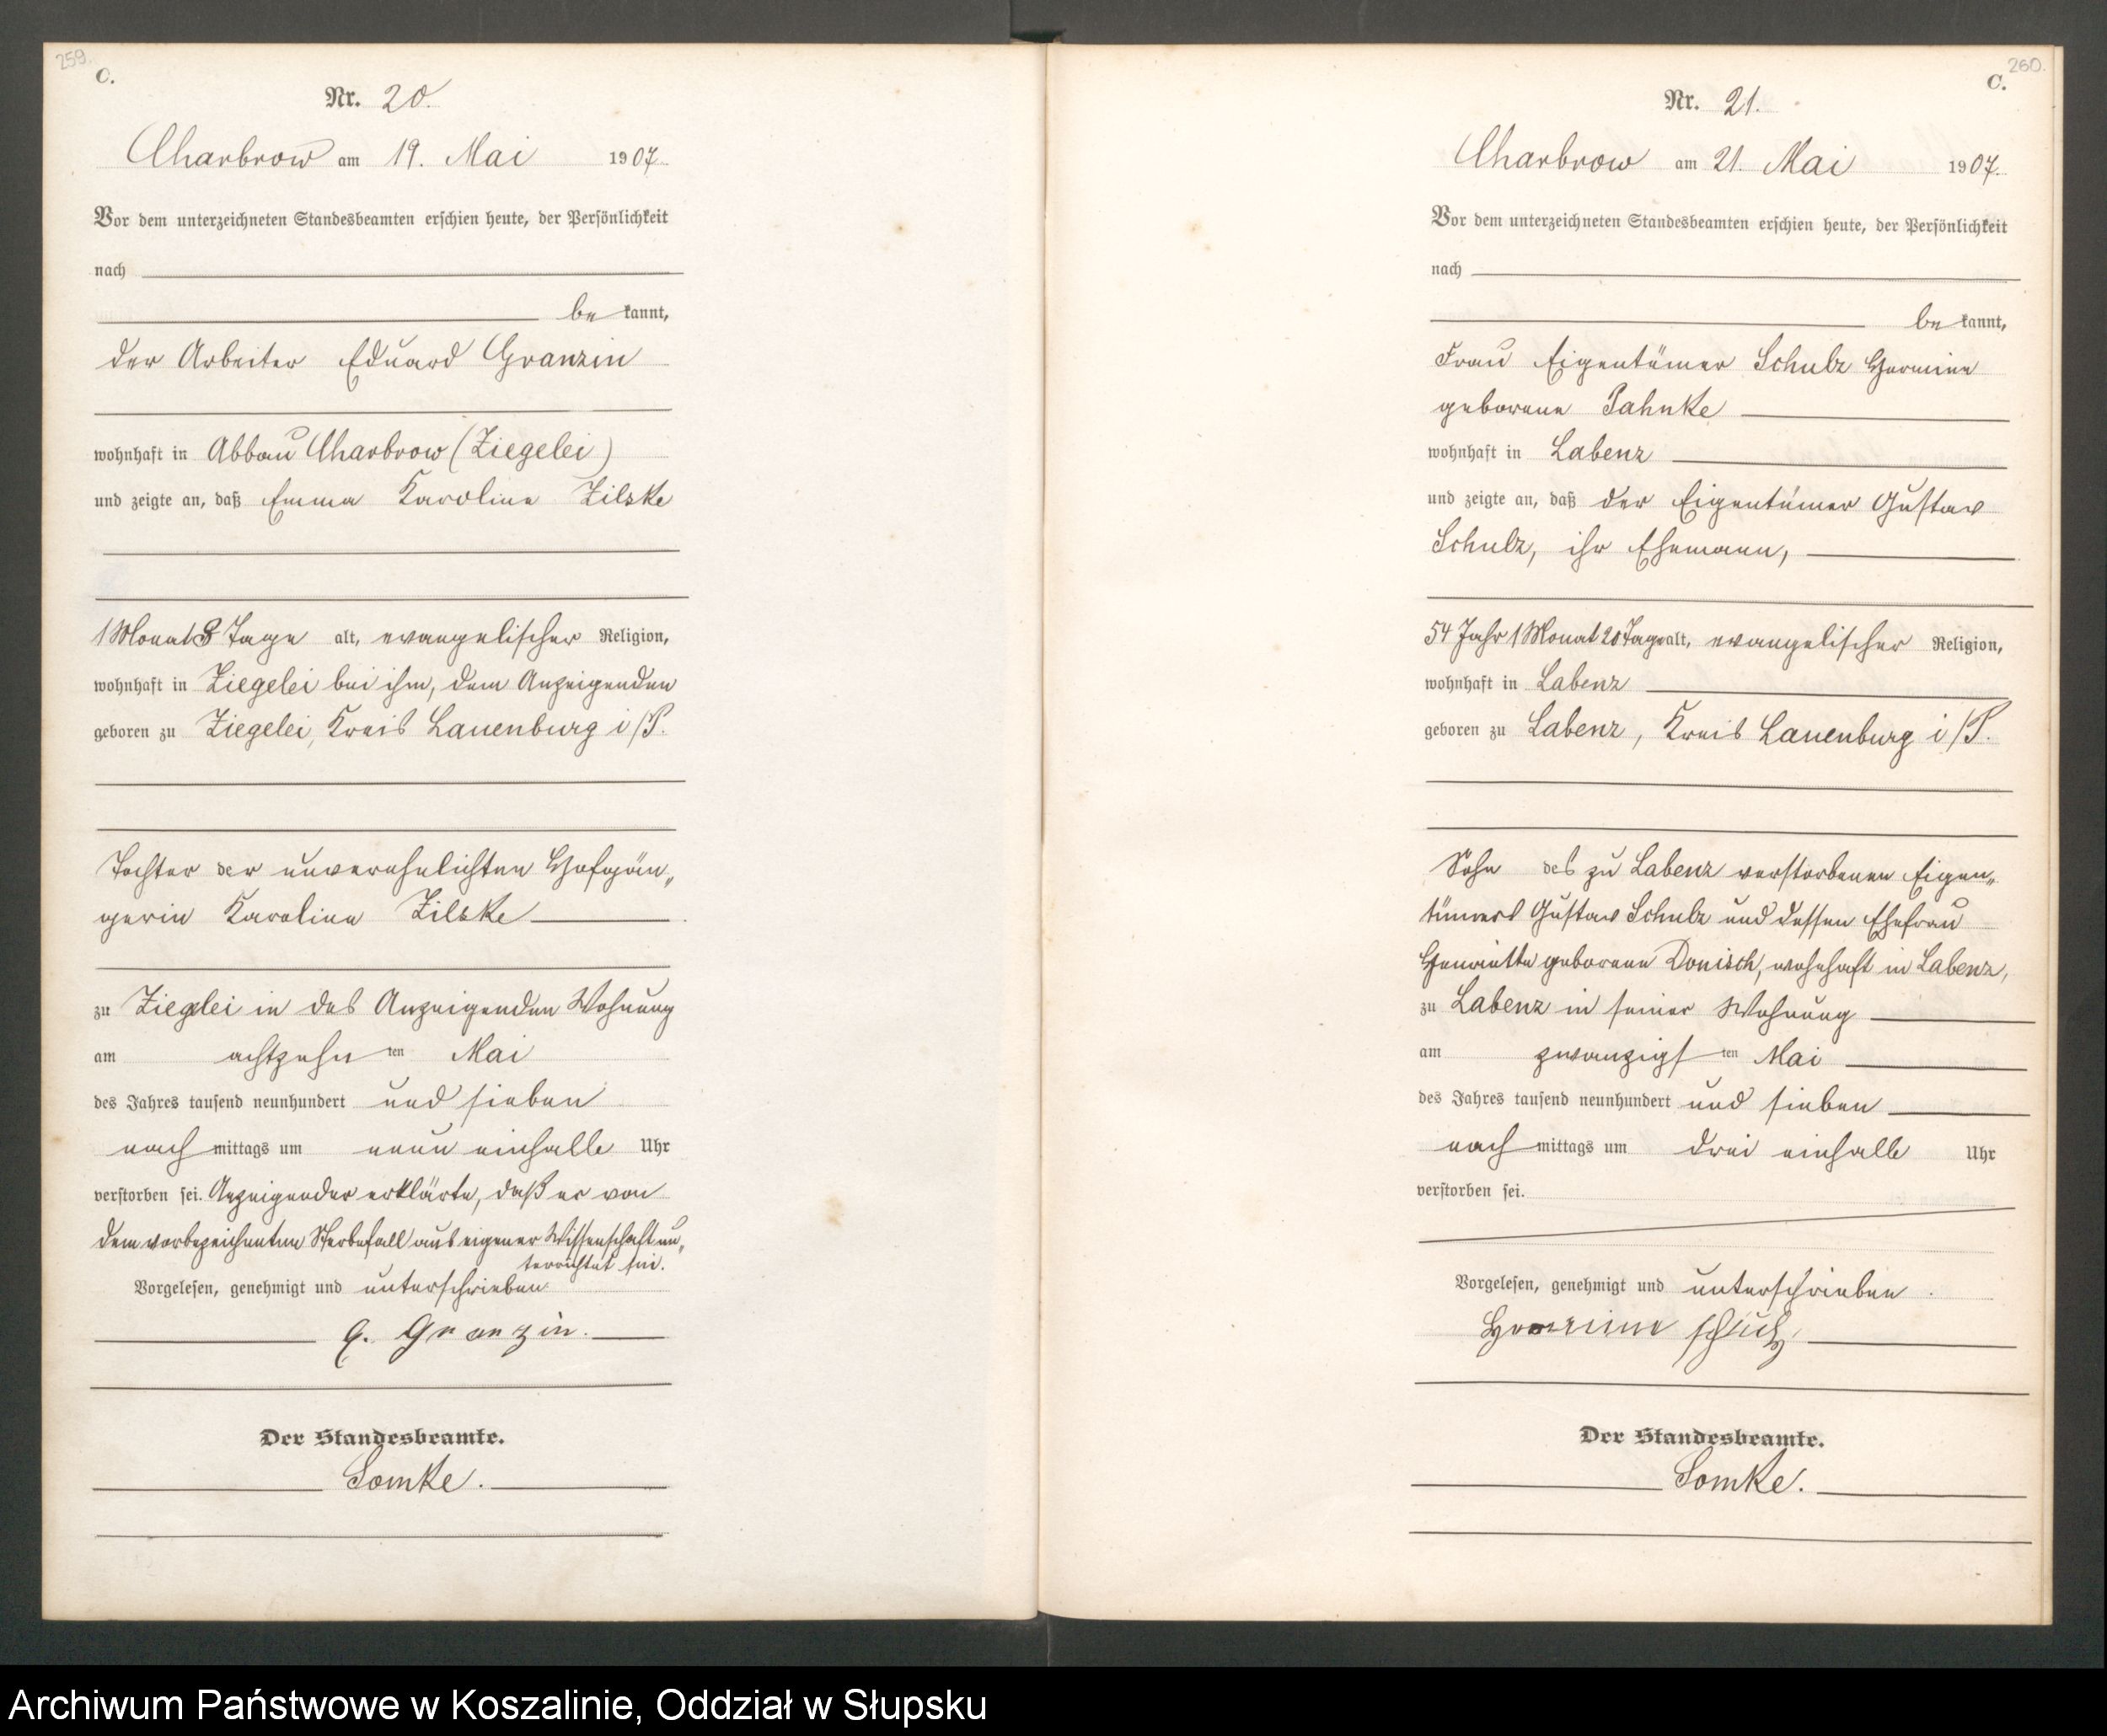 259.
C.
Nr. 20.
Charbrow am 19. Mai 1907.
Vor dem unterzeichneten Standesbeamten erschien heute, der Persönlichkeit
nach
be kannt,
der Arbeiter Eduard Granzin
wohnhaft in Abbau Charbrow (Ziegelei)
und zeigte an, daß Emma Karoline Zilske
1 Monat 8 Tage alt, evangelischer Religion,
wohnhaft in Ziegelei bei ihm, dem Anzeigenden
geboren zu Ziegelei, Kreis Lauenburg i/P.
Tochter der unverehelichten Hofgän„
gerin Karoline Zilske
zu Zieglei in des Anzeigenden Wohnung
am achtzehn ten Mai
des Jahres tausend neunhundert und sieben
nach mittags um neun einhalb Uhr
verstorben sei. Anzeigender erklärte, daß er von
dem vorbezeichneten Sterbefall aus eigener Wissenschaft un„
terrichtet sei.
Vorgelesen, genehmigt und unterschrieben
E. Granzin.
Der Standesbeamte.
Somke.
260.
C.
Nr. 21.
Charbrow am 21. Mai 1907.
Vor dem unterzeichneten Standesbeamten erschien heute, der Persönlichkeit
nach
be kannt,
Frau Eigentümer Schulz Hermine
geborene Pahnke
wohnhaft in Labenz
und zeigte an, daß der Eigentümer Gustav
Schulz, ihr Ehemann,
54 Jahr 1 Monat 20 Tage alt, evangelischer Religion,
wohnhaft in Labenz
geboren zu Labenz, Kreis Lauenburg i/P.
Sohn des zu Labenz verstorbenen Eigen„
tümers Gustav Schulz und dessen Ehefrau
Henriette geborene Donisch, wohnhaft in Labenz,
zu Labenz in seiner Wohnung
am zwanzigs ten Mai
des Jahres tausend neunhundert und sieben
nach mittags um drei einhalb Uhr
verstorben sei.
Vorgelesen, genehmigt und unterschrieben.
Hermine Schulz
Der Standesbeamte.
Somke.
Archiwum Państwowe w Koszalinie, Oddział w Słupsku